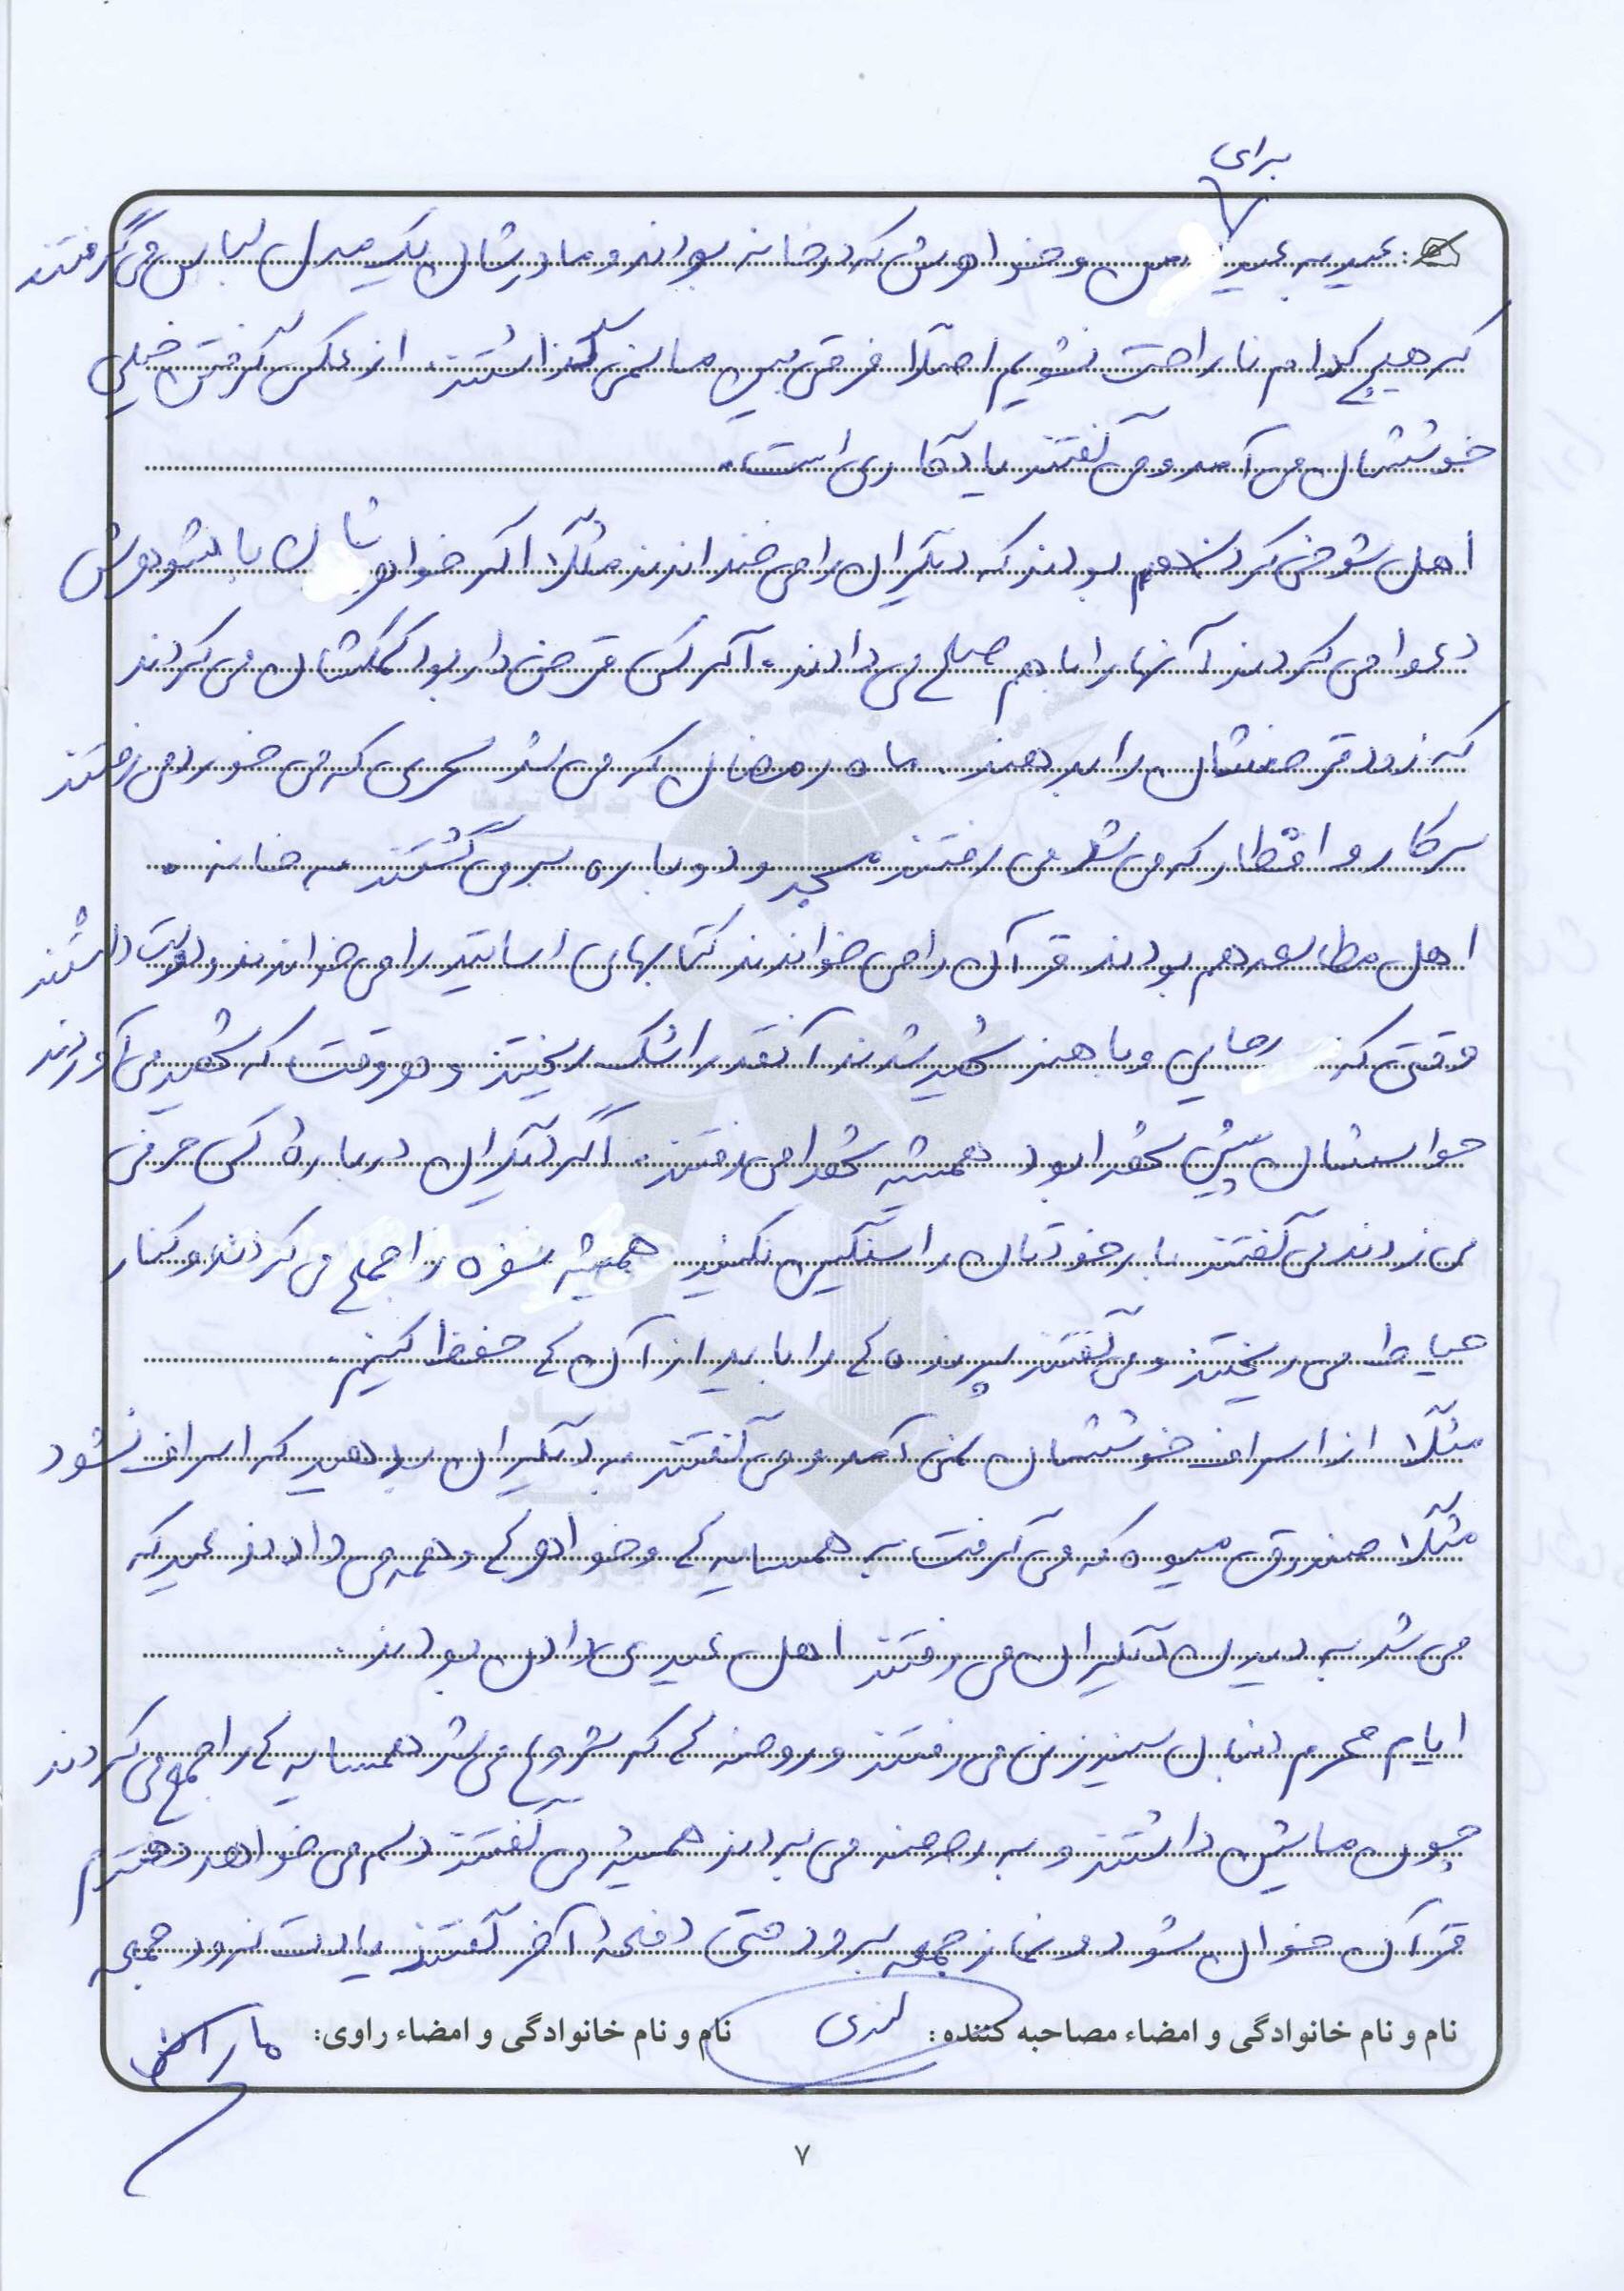 برای
عید به عید من و خواهرش که در خانه بودند و مادرشان یک مدل لباس می گرفتند
که هیچ کدام ناراحت نشویم اصلا فرقی بین ما نمی گذاشتند. از عکس گرفتن خیلی
خوششان می آمد و می گفتند یادگاری است.
اهل شوخی کردن هم بودند که دیگران را می خنداندند مثلا اگر خواهرشان با شوهرش
دعوا می کردند آنها را با هم صلح می دادند. اگر کسی قرض دار بود کمکشان می کردند
که زود قرضشان را بدهند. ماه رمضان که می شد سحری که می خورد می رفتند
سر کار و افطار که می شد می رفتند مسجد و دوباره برمی گشتند به خانه.
اهل مطالعه هم بودند قرآن را می خواندند کتابهای اساتید را می خواندند و دوست داشتند
وقتی که رجایی و باهنر شهید شدند آنقدر اشک ریختند و هر وقت که شهید می آوردند
حواسشان پیش شهدا بود همیشه شهدا می رفتند. اگر دیگران درباره کسی حرفی
می زدند می گفتند بار خودتان را سنگین نکنید همیشه سفره را جمع می کردند و کنار
حیاط می ریختند و می گفتند پرنده ها را باید از آن ها حفظ کنیم.
مثلا از اسراف خوششان نمی آمد و می گفتند به دیگران بدهید که اسراف نشود
مثلا صندوق میوه که می گرفت به همسایه ها و خواهرها و همه می دادند عید که
می شد به دیدن دیگران می رفتند اهل عیدی دادن بودند.
ایام محرم دنبال سینه زنی می رفتند و روضه ها که شروع می شد همسایه ها را جمع می کردند
چون ماشین داشتند و به روضه می بردند همیشه می گفتند دلم می خواهد دخترم
قرآن خوان شود و نماز جمعه برود حتی دفعه آخر گفتند یادت نرود جمعه
نام و نام خانوادگی و امضاء مصاحبه کننده: نام و نام خانوادگی و امضاء راوی:
۷